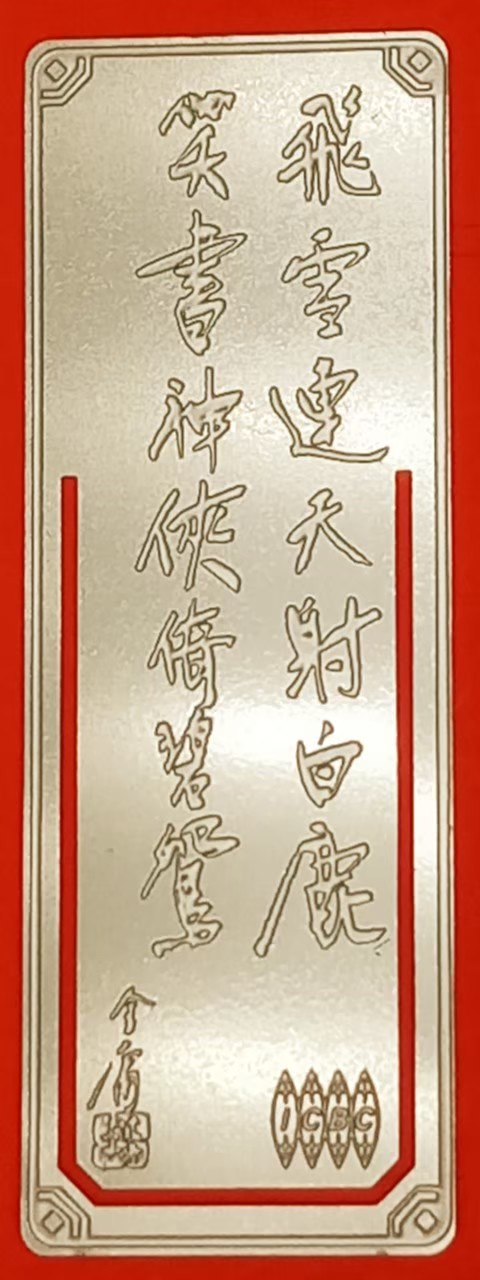 飛雪連天射白鹿
笑書神俠倚碧鴛
金庸
ICBC